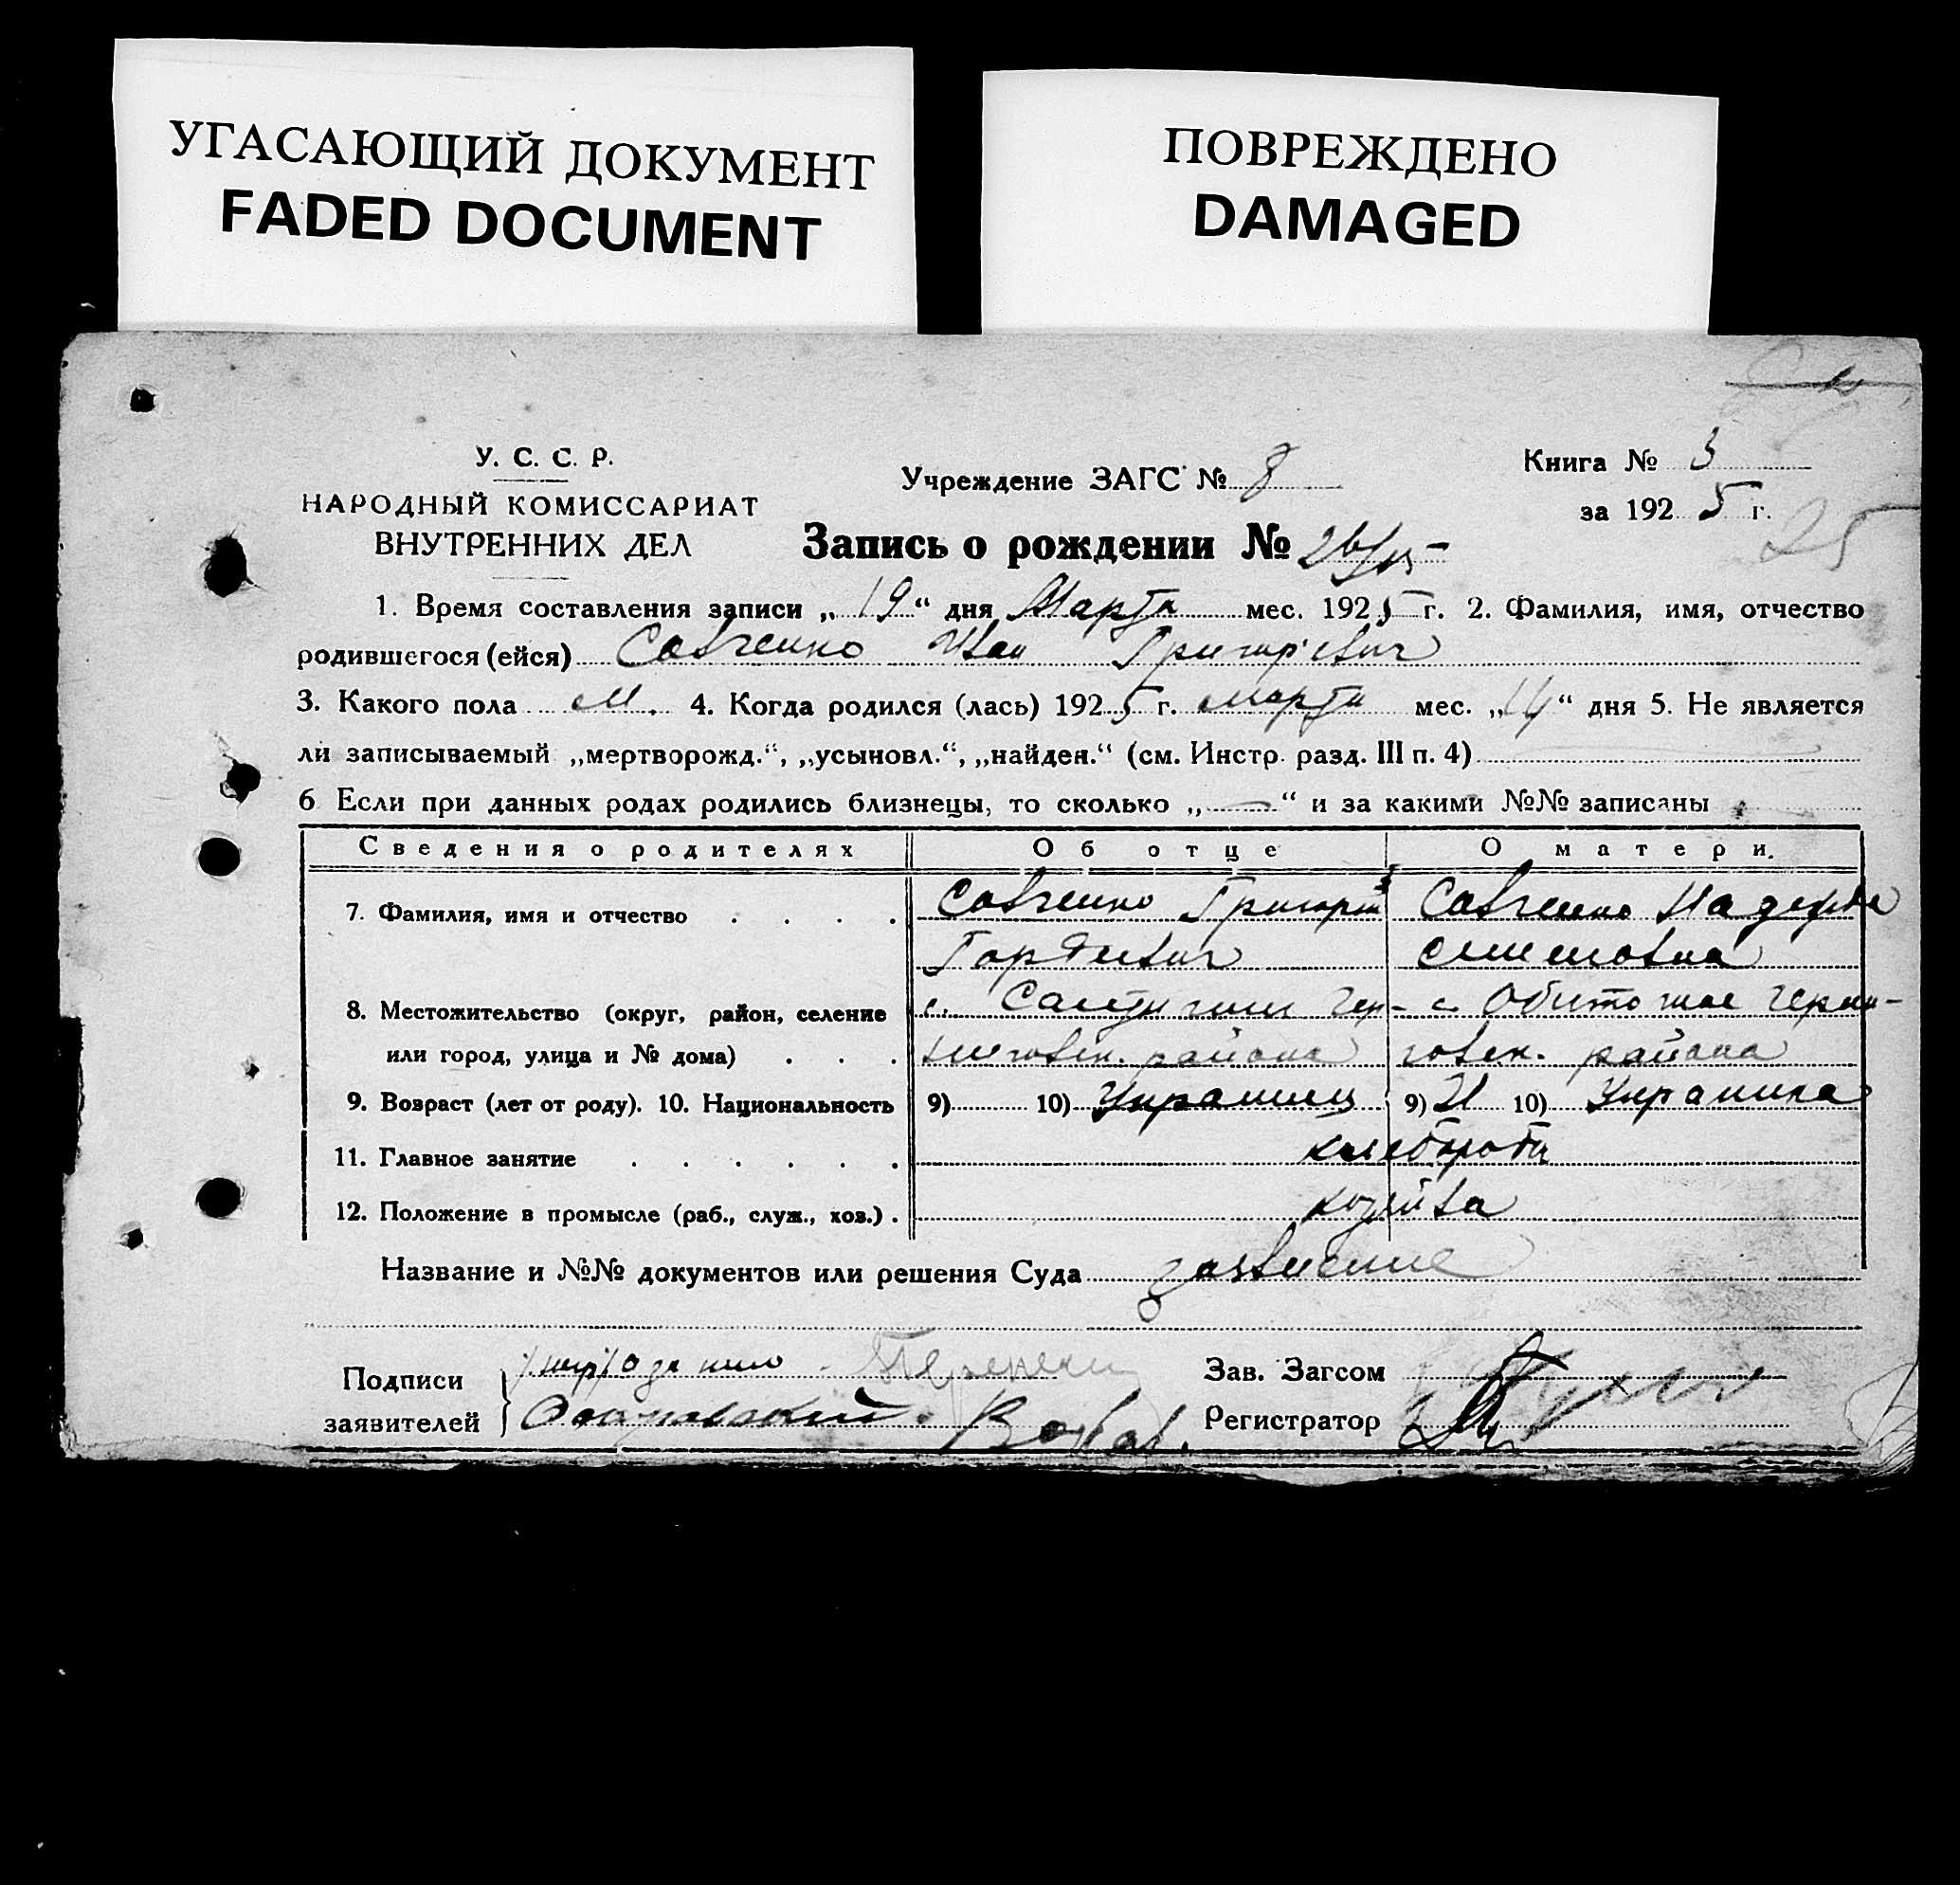 УГАСАЮЩИЙ ДОКУМЕНТ
FADED DOCUMENT
ПОВРЕЖДЕНО
DAMAGED
У. С. С. Р.
НАРОДНЫЙ КОМИССАРИАТ
ВНУТРЕННИХ ДЕЛ
Учреждение ЗАГС № 8
Книга № 3
за 1925 г.
25
Запись о рождении №
1. Время составления записи „19“ дня Марта мес. 1925 г. 2. Фамилия, имя, отчество
родившегося (ейся) Савченко Иван Григорьевич
3. Какого пола М. 4. Когда родился (лась) 1925 г. марта мес. „14“ дня 5. Не является
ли записываемый „мертворожд.“, „усыновл.“, „найден.“ (см. Инстр. разд. III п. 4)
6 Если при данных родах родились близнецы, то сколько „—“ и за какими №№ записаны
Сведения о родителях Об отце О матери.
7. Фамилия, имя и отчество . . . . Савченко Григорий Савченко Надежда
Гордеевич Семеновна
8. Местожительство (округ, район, селение с. Салтичии Чер- с. Обиточное Черни-
или город, улица и № дома) . . . ниговск. района говск. района
9. Возраст (лет от роду). 10. Национальность 9) 10) Украинец 9) 21 10) Украинка
11. Главное занятие . . . . . . хлеборобы
12. Положение в промысле (раб., служ., хоз.) . хозяйва
Название и №№ документов или решения Суда заявление
Подписи
заявителей
Зав. Загсом
Регистратор